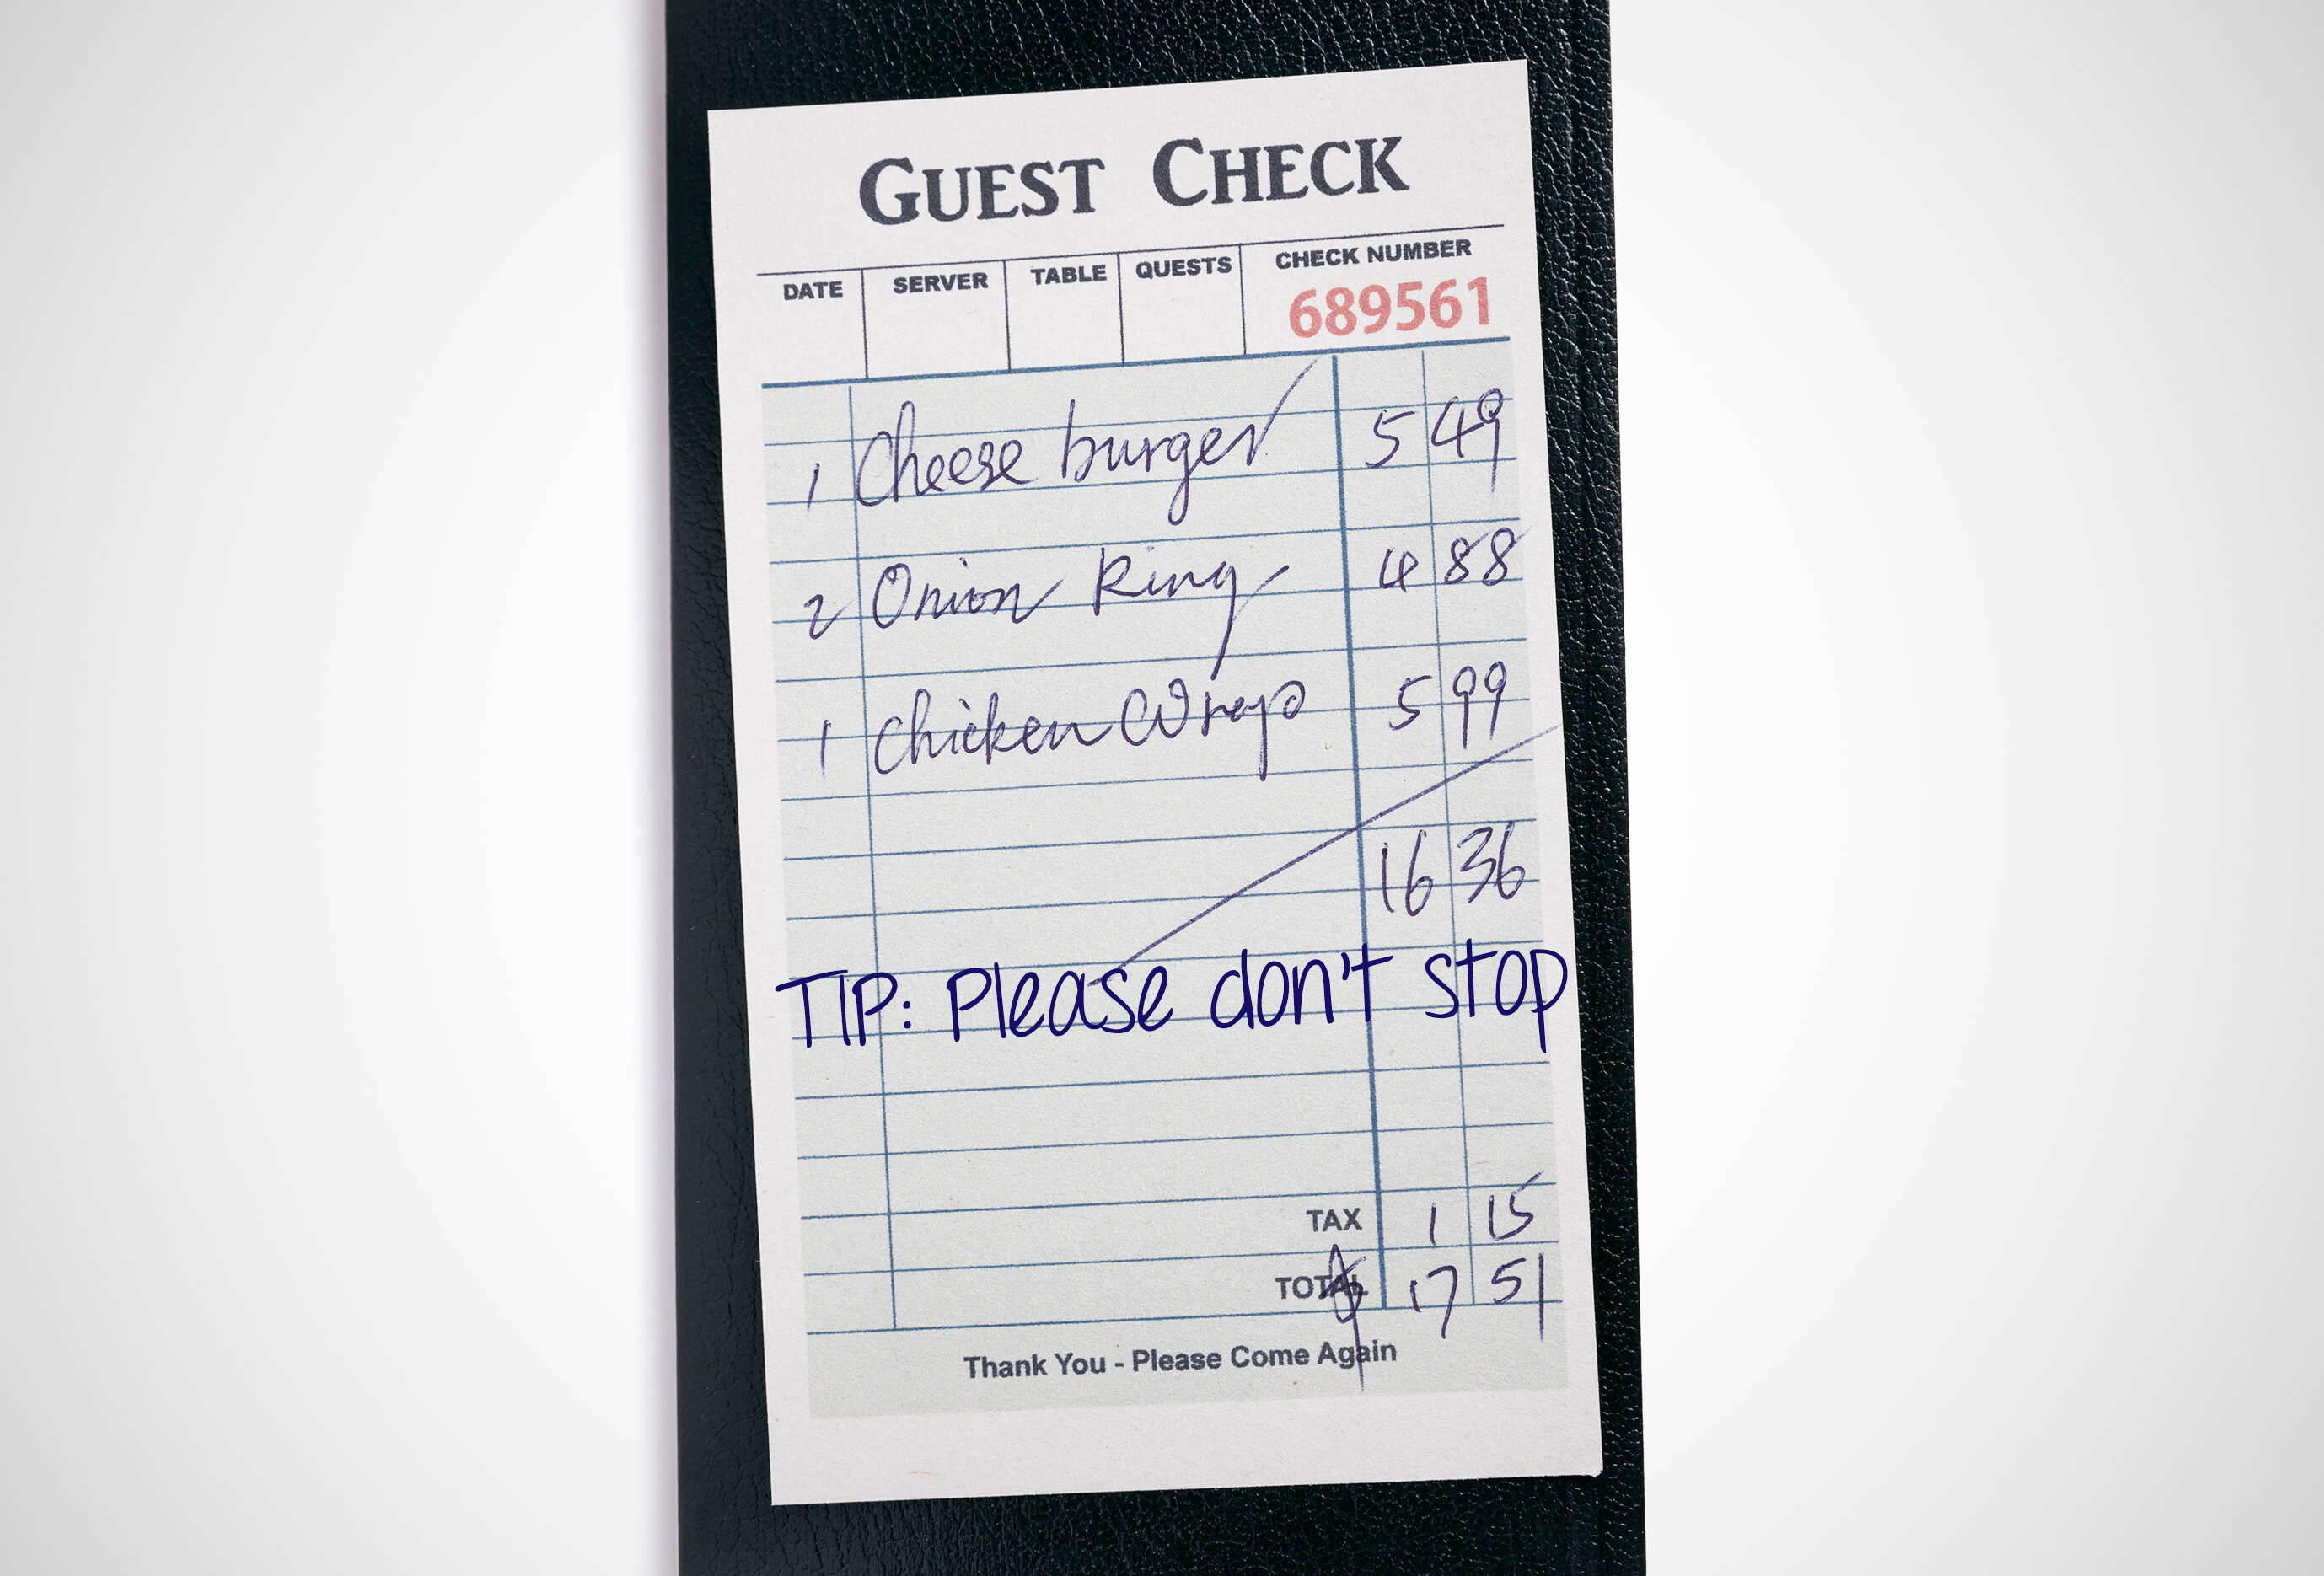 GUEST CHECK
DATE SERVER TABLE QUESTS CHECK NUMBER
689561
1 Cheese burger 5 49
2 Onion Ring 4 88
1 Chicken Wrap 5 99
16 36
TIP: Please don't stop
TAX 1 15
TOTAL 17 51
Thank You - Please Come Again